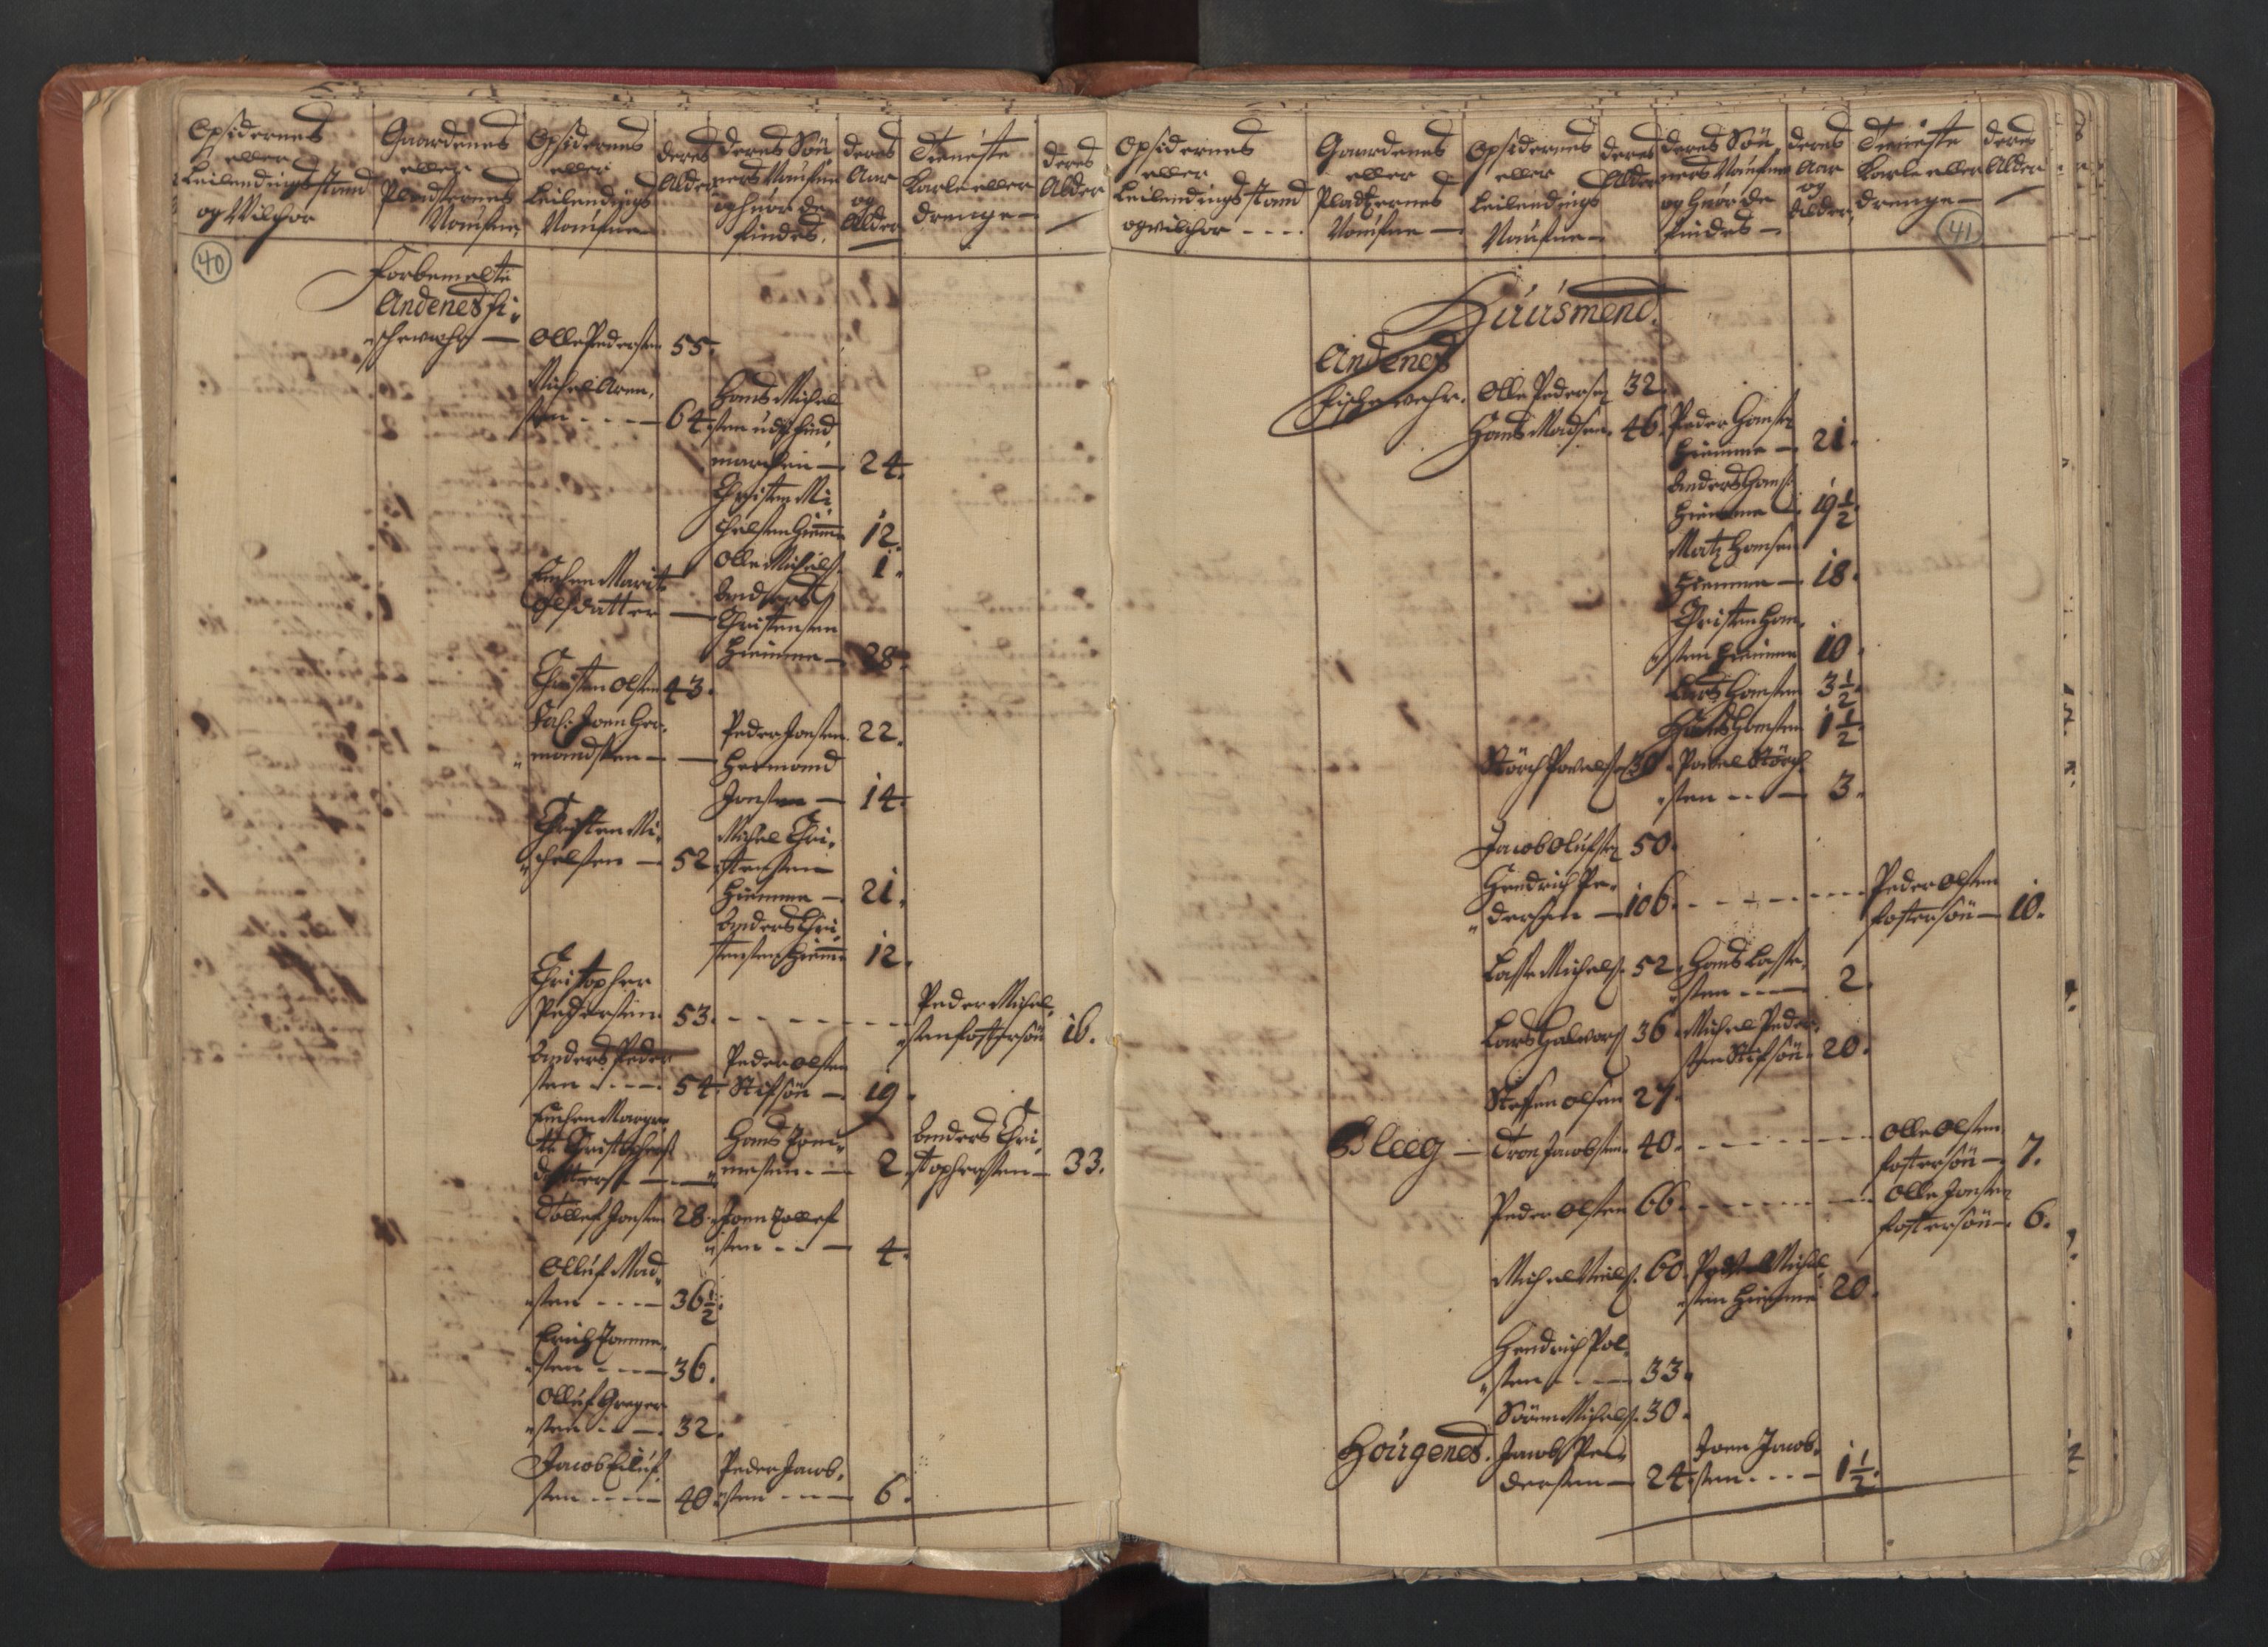 Opsidernes
eller
Leilendings stand
og Vilchor
Gaardenes
eller
Pladsernes
Naufne
Opsidernes
eller
Leilendings
Naufne
deres
Alder
deres Søn
ners Naufne
og huor de
findes
deres
Aar
og
Alder
Tieneste
Karle eller
drenge
deres
Alder
40
Forbemelte
Andenes fi-
schewehr
Olle Pedersen 55.
Michel Aren-
sen 64.
Hans Michel
sen udj find
marchen 24.
Christen Mi-
chelsen hiemme 12.
Olle Michels. 1.
Enchen Marit
Olsdatter
Anders
Christensen
hiemme 28.
Christen Olsen 43.
Sal: Joen Her-
mandsen
Peder Jonsen 22.
Hermand
Jonsen 14.
Christen Mi-
chelsen 52.
Michel Chri-
stensen
hiemme 21.
Anders Chri-
stensen hiemme 12.
Christopher
Pedersen 53.
Peder Michel-
sen fostersøn 16.
Anders Peder
sen 54.
Peder Olsen
Stifsøn 19.
Enchen Margre-
te Christophers
datter
Hans
2.
Anders Chri-
stophersen 33.
Tollef Jonsen 28.
Joen Tollef
sen 4.
Olluf Mad-
sen 36½.
Erich
sen 36.
Olluf Greger
sen 32.
Jacob Elluf-
sen 40.
Peder Jacob-
sen 6.
Opsidernes
eller
Leilendings stand
og vilchor
Gaardenes
eller
Pladzernes
Naufne
Opsidernes
eller
Leilendings
Naufne
deres
Alder
deres Søn
ners Naufne
og huor de
findes
deres
Aar
og
Alder
Tieneste
Karle eller
drenge
deres
Alder
41
Huusmend.
Andenes
fischewehr.
Olle Pedersen 32.
Hans Madsen 46.
Peder Hansen
hiemme 21.
Anders Hans:
hiemme 19½.
Matz Hansen
hiemme 18.
Christen Han-
sen hiemme 10.
Lars Hansen 3½.
Hans Hansen 1½
Størch Povels. 30.
Povel Størch
sen 3.
Jacob Olufsen 50.
Hendrich Pe-
dersen 106.
Peder Olsen
fostersøn 10.
Lasse Michels. 52.
Hans Lasse-
sen 2.
Lars Halvors 36.
Michel Peder-
sen Stifsøn 20.
Steffen Olsen 27.
Bleeg
Tron Jacobsen 40.
Olle Olsen
fostersøn 7.
Peder Olsen 66.
Olle Jonsen
fostersøn 6.
Michel Niels. 60.
Peder Michel
sen hiemme 20.
Hendrich Pol-
sen 33.
Søren Michels. 30.
Hougenes.
Jacob Pe-
dersen 24.
Joen Jacob-
sen 1½.